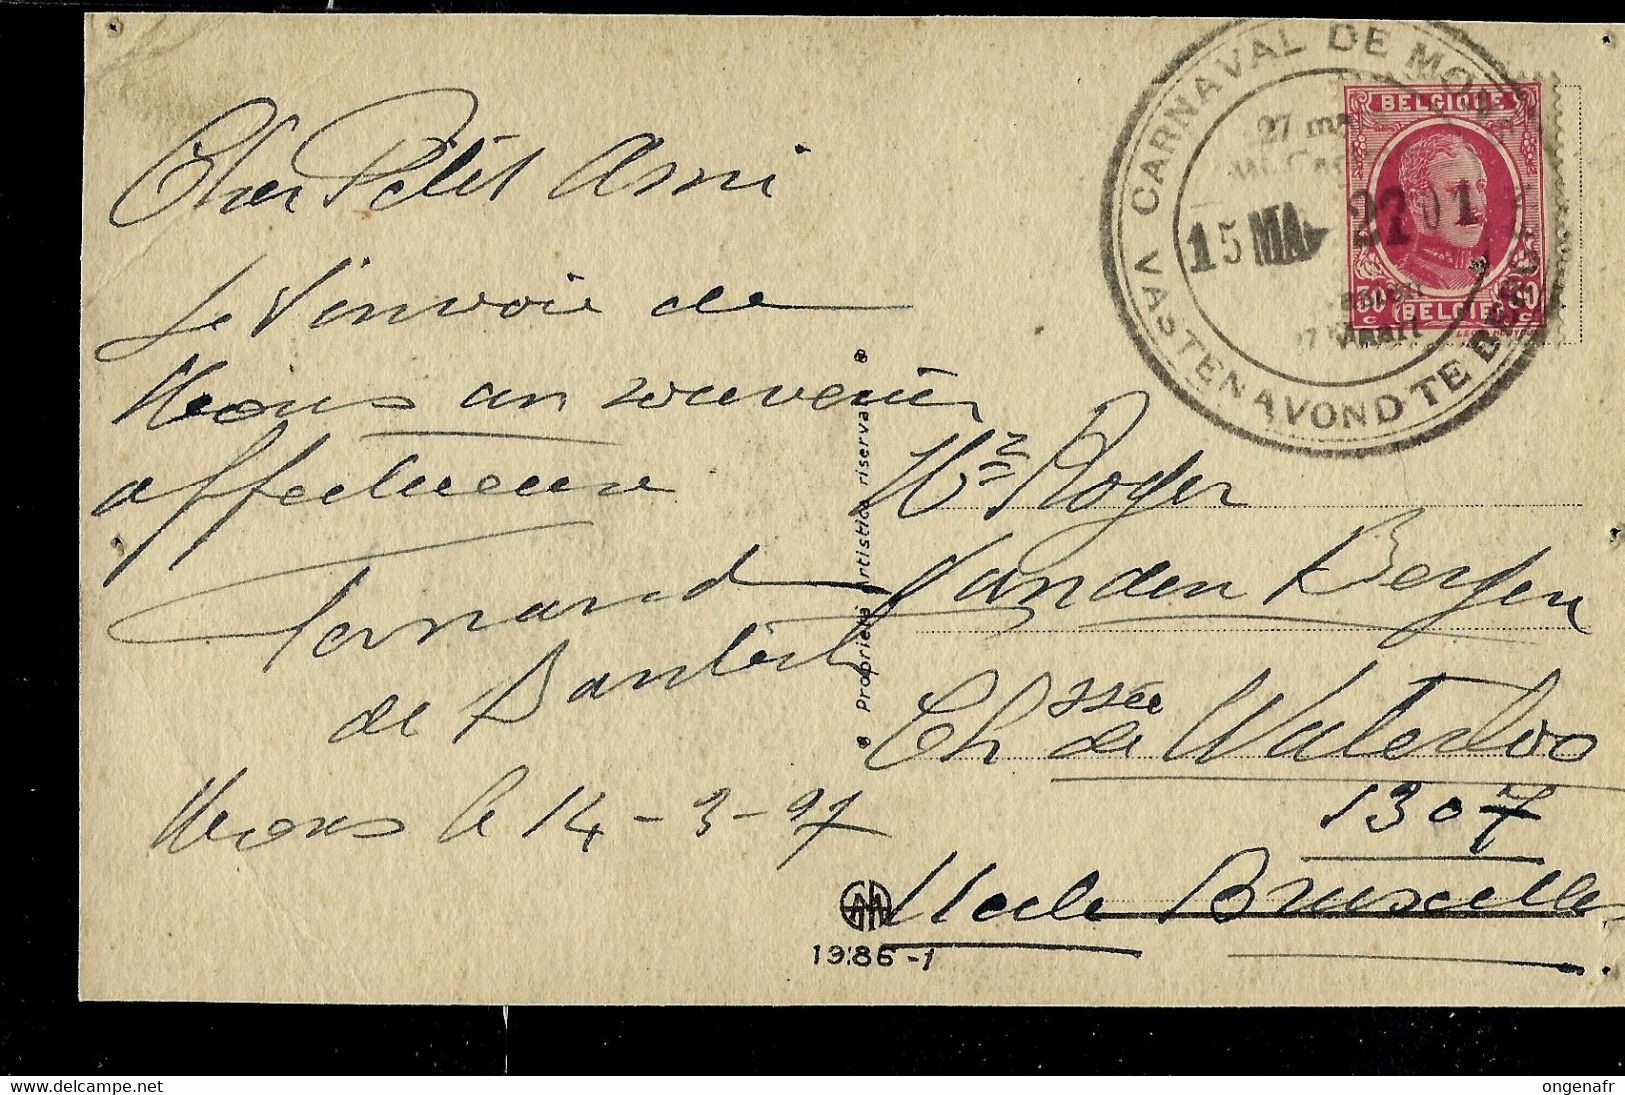 Cher Petit Ami
Je t'envoie de
Mons un souvenir
affectueux
Fernand
de
Mons le 14-3-27
® Proprieta Artistica riservata ®
19186-1
CARNAVAL DE MO
VASTENAVOND TE BER
27 ma
15 MA 2201
27 Maart
BELGIQUE
BELGIE
Mr Roger
Vanden Bergen
Chssée de Waterloo
1307
Uccle Bruxelles
delcampe.net
ongenafr